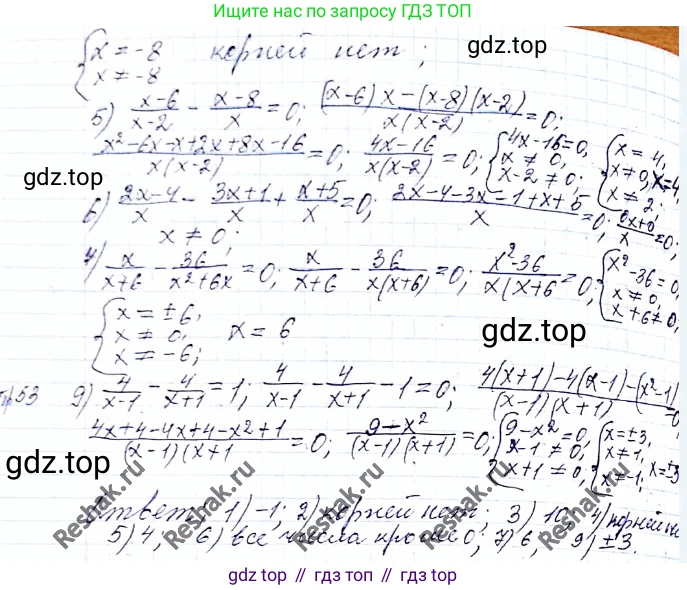 Ищите нас по запросу ГДЗ ТОП
{x = -8
x ≠ -8 корней нет;
gdz.top
5) (x-6)/(x-2) - (x-8)/x = 0; ((x-6)x-(x-8)(x-2))/(x(x-2)) = 0;
(x²-6x-x+2x+8x-16)/(x(x-2)) = 0; (4x-16)/(x(x-2)) = 0; {4x-16=0, x ≠ 0, x-2 ≠ 0; {x = 4, x ≠ 0, x ≠ 2; x=4
gdz.top
6) (2x-4)/x - (3x+1)/x + (x+5)/x = 0; (2x-4-3x-1+x+5)/x = 0; (0x+0)/x = 0;
x ≠ 0;
7) x/(x+6) - 36/(x²+6x) = 0; x/(x+6) - 36/(x(x+6)) = 0; (x²-36)/(x(x+6) = 0; {x²-36=0, x ≠ 0, x+6 ≠ 0;
{x = ±6, x ≠ 0, x ≠ -6; x = 6
gdz.top
№53 9) 4/(x-1) - 4/(x+1) = 1; 4/(x-1) - 4/(x+1) - 1 = 0; (4(x+1)-4(x-1)-(x²-1))/((x-1)(x+1)) =0
(4x+4-4x+4-x²+1)/((x-1)(x+1) = 0; (9-x²)/((x-1)(x+1)) = 0; {9-x²=0, x-1 ≠ 0, x+1 ≠ 0; {x=±3, x≠1, x≠-1; x=±3
gdz.top
Ответ: 1) -1; 2) корней нет; 3) 10; 4) корней не
5) 4; 6) все числа кроме 0; 7) 6, 9) ±3.
Reshak.ru
Reshak.ru
Reshak.ru
Reshak.ru
gdz top // гдз топ // gdz.top